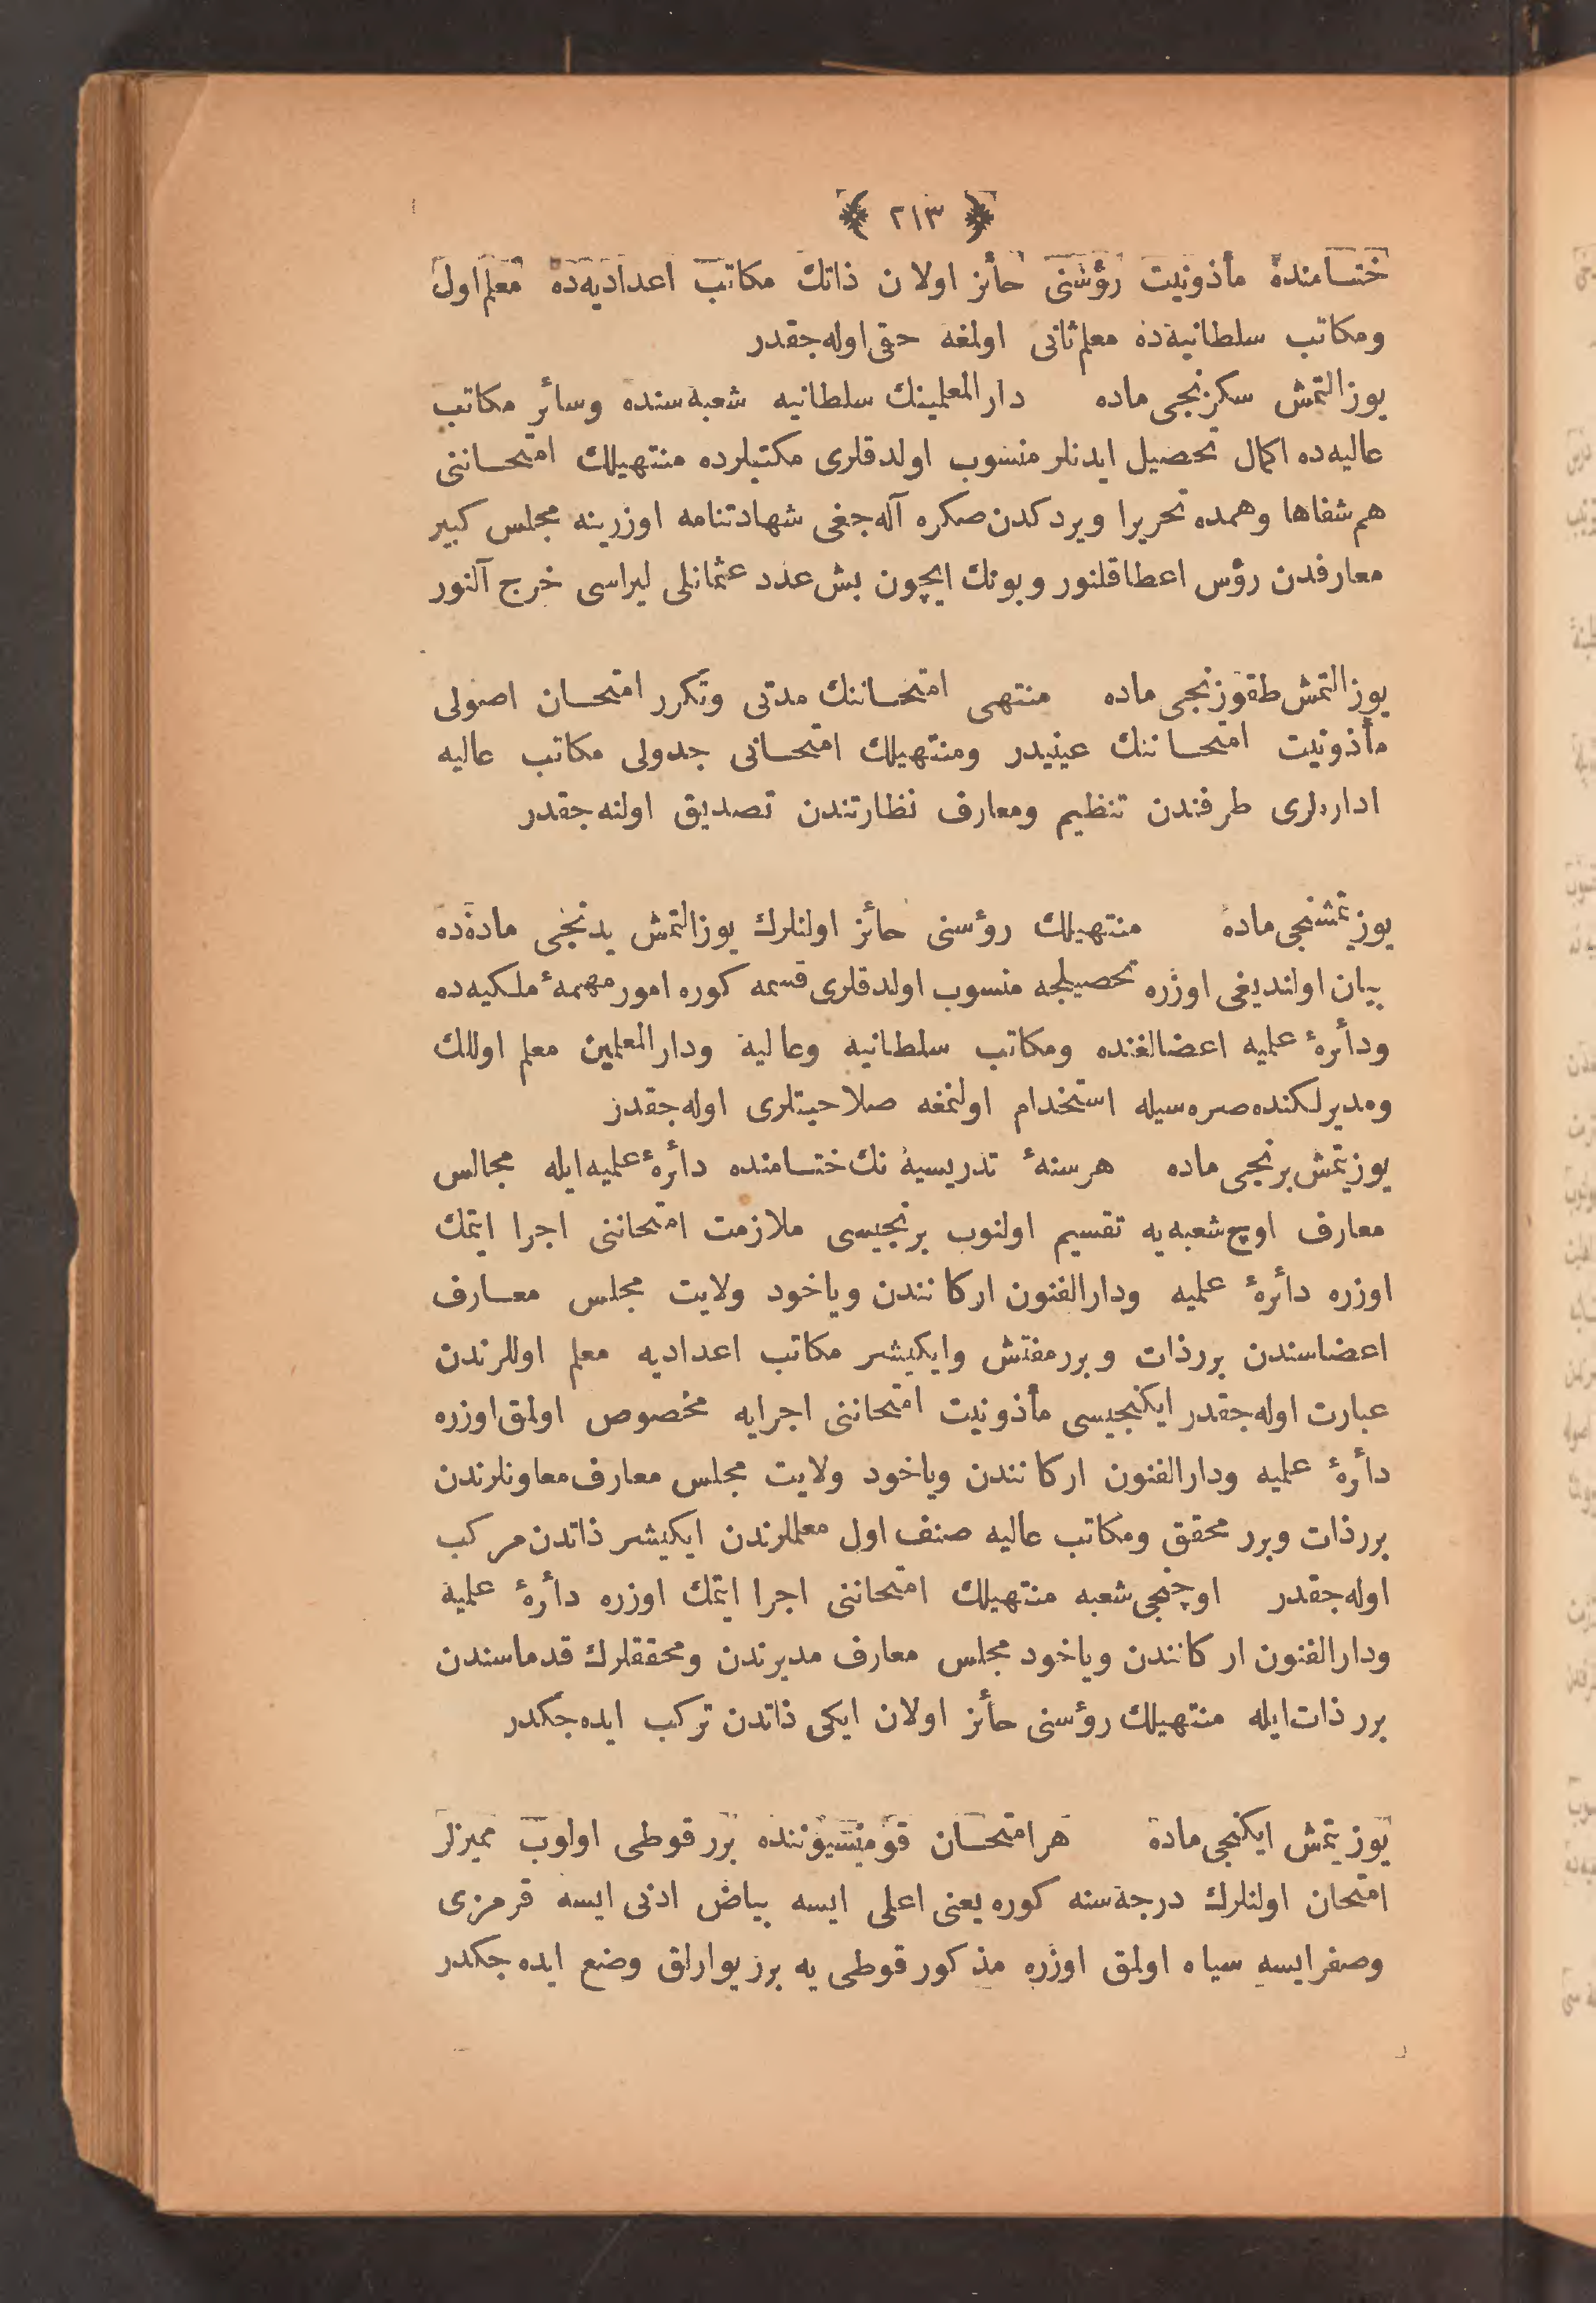 ﴿ ٢١٣ ﴾
ختـامنده مأذونیت رؤسنی حائز اولان ذاتك مکاتب اعدادیه‌ده معلم اول
ومکاتب سلطانیه‌ده معلم ثانی اولمغه حقی اوله‌جقدر
یوز التمش سکزنجی ماده دار المعلمینك سلطانیه شعبه‌سنده وسائر مکاتب
عالیه‌ده اکمال تحصیل ایدنلر منسوب اولدقلری مکتبلرده منتهیلك امتحـاننی
هم شفاها وهمده تحریرا ویردکدن صکره آله‌جغی شهادتنامه اوزرینه مجلس کبیر
معارفدن رؤس اعطا قلنور وبونك ایچون بش عدد عثمانلی لیراسی خرج آلنور
یوز التمش طقوزنجی ماده منتهی امتحـاننك مدتی وتکرر امتحـان اصولی
مأذونیت امتحـاننك عینیدر ومنتهیلك امتحـانی جدولی مکاتب عالیه
اداره‌لری طرفندن تنظیم ومعارف نظارتندن تصدیق اولنه‌جقدر
یوز یتمشنجی ماده منتهیلك رؤسنی حائز اولنلرك یوز التمش یدنجی ماده‌ده
بیان اولندیغی اوزره تحصیلجه منسوب اولدقلری قسمه کوره امور مهمهٔ ملکیه‌ده
ودائرهٔ علمیه اعضالغنده ومکاتب سلطانیه وعالیه ودار المعلمین معلم اوللك
ومدیرلکنده صره‌سیله استخدام اولنمغه صلاحیتلری اوله‌جقدر
یوز یتمش برنجی ماده هر سنهٔ تدریسیه نك ختـامنده دائرهٔ علمیه ایله مجالس
معارف اوچ شعبه‌یه تقسیم اولنوب برنجیسی ملازمت امتحاننی اجرا ایتمك
اوزره دائرهٔ علمیه ودار الفنون ارکانندن ویاخود ولایت مجلس معـارف
اعضاسندن برر ذات وبرر مفتش وایکیشر مکاتب اعدادیه معلم اوللرندن
عبارت اوله‌جقدر ایکنجیسی مأذونیت امتحاننی اجرایه مخصوص اولمق اوزره
دائرهٔ علمیه ودار الفنون ارکانندن ویاخود ولایت مجلس معارف معاونلرندن
برر ذات وبرر محقق ومکاتب عالیه صنف اول معلملرندن ایکیشر ذاتدن مرکب
اوله‌جقدر اوچنجی شعبه منتهیلك امتحاننی اجرا ایتمك اوزره دائرهٔ علمیه
ودار الفنون ارکانندن ویاخود مجلس معارف مدیرندن ومحققلرك قدماسندن
برر ذات ایله منتهیلك رؤسنی حائز اولان ایکی ذاتدن ترکب ایده‌جکدر
یوز یتمش ایکنجی ماده هر امتحـان قومیسیوننده برر قوطی اولوب ممیزلر
امتحان اولنلرك درجه‌سنه کوره یعنی اعلی ایسه بیاض ادنی ایسه قرمزی
وصفر ایسه سیاه اولمق اوزره مذکور قوطی یه برر یوارلق وضع ایده‌جکدر